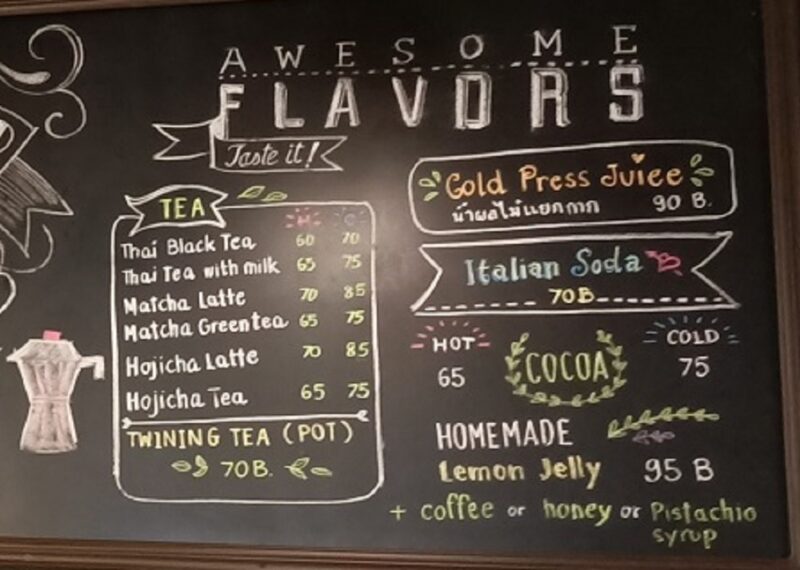 AWESOME
FLAVORS
Taste it!
TEA
H C
Thai Black Tea 60 70
Thai Tea with milk 65 75
Matcha Latte 70 85
Matcha Greentea 65 75
Hojicha Latte 70 85
Hojicha Tea 65 75
TWINING TEA (POT)
70B.
Cold Press Juice
น้ำผลไม้แยกกาก 90 B.
Italian Soda
70B
HOT COCOA COLD
65 75
HOMEMADE
Lemon Jelly 95 B
+ coffee or honey or Pistachio
syrup